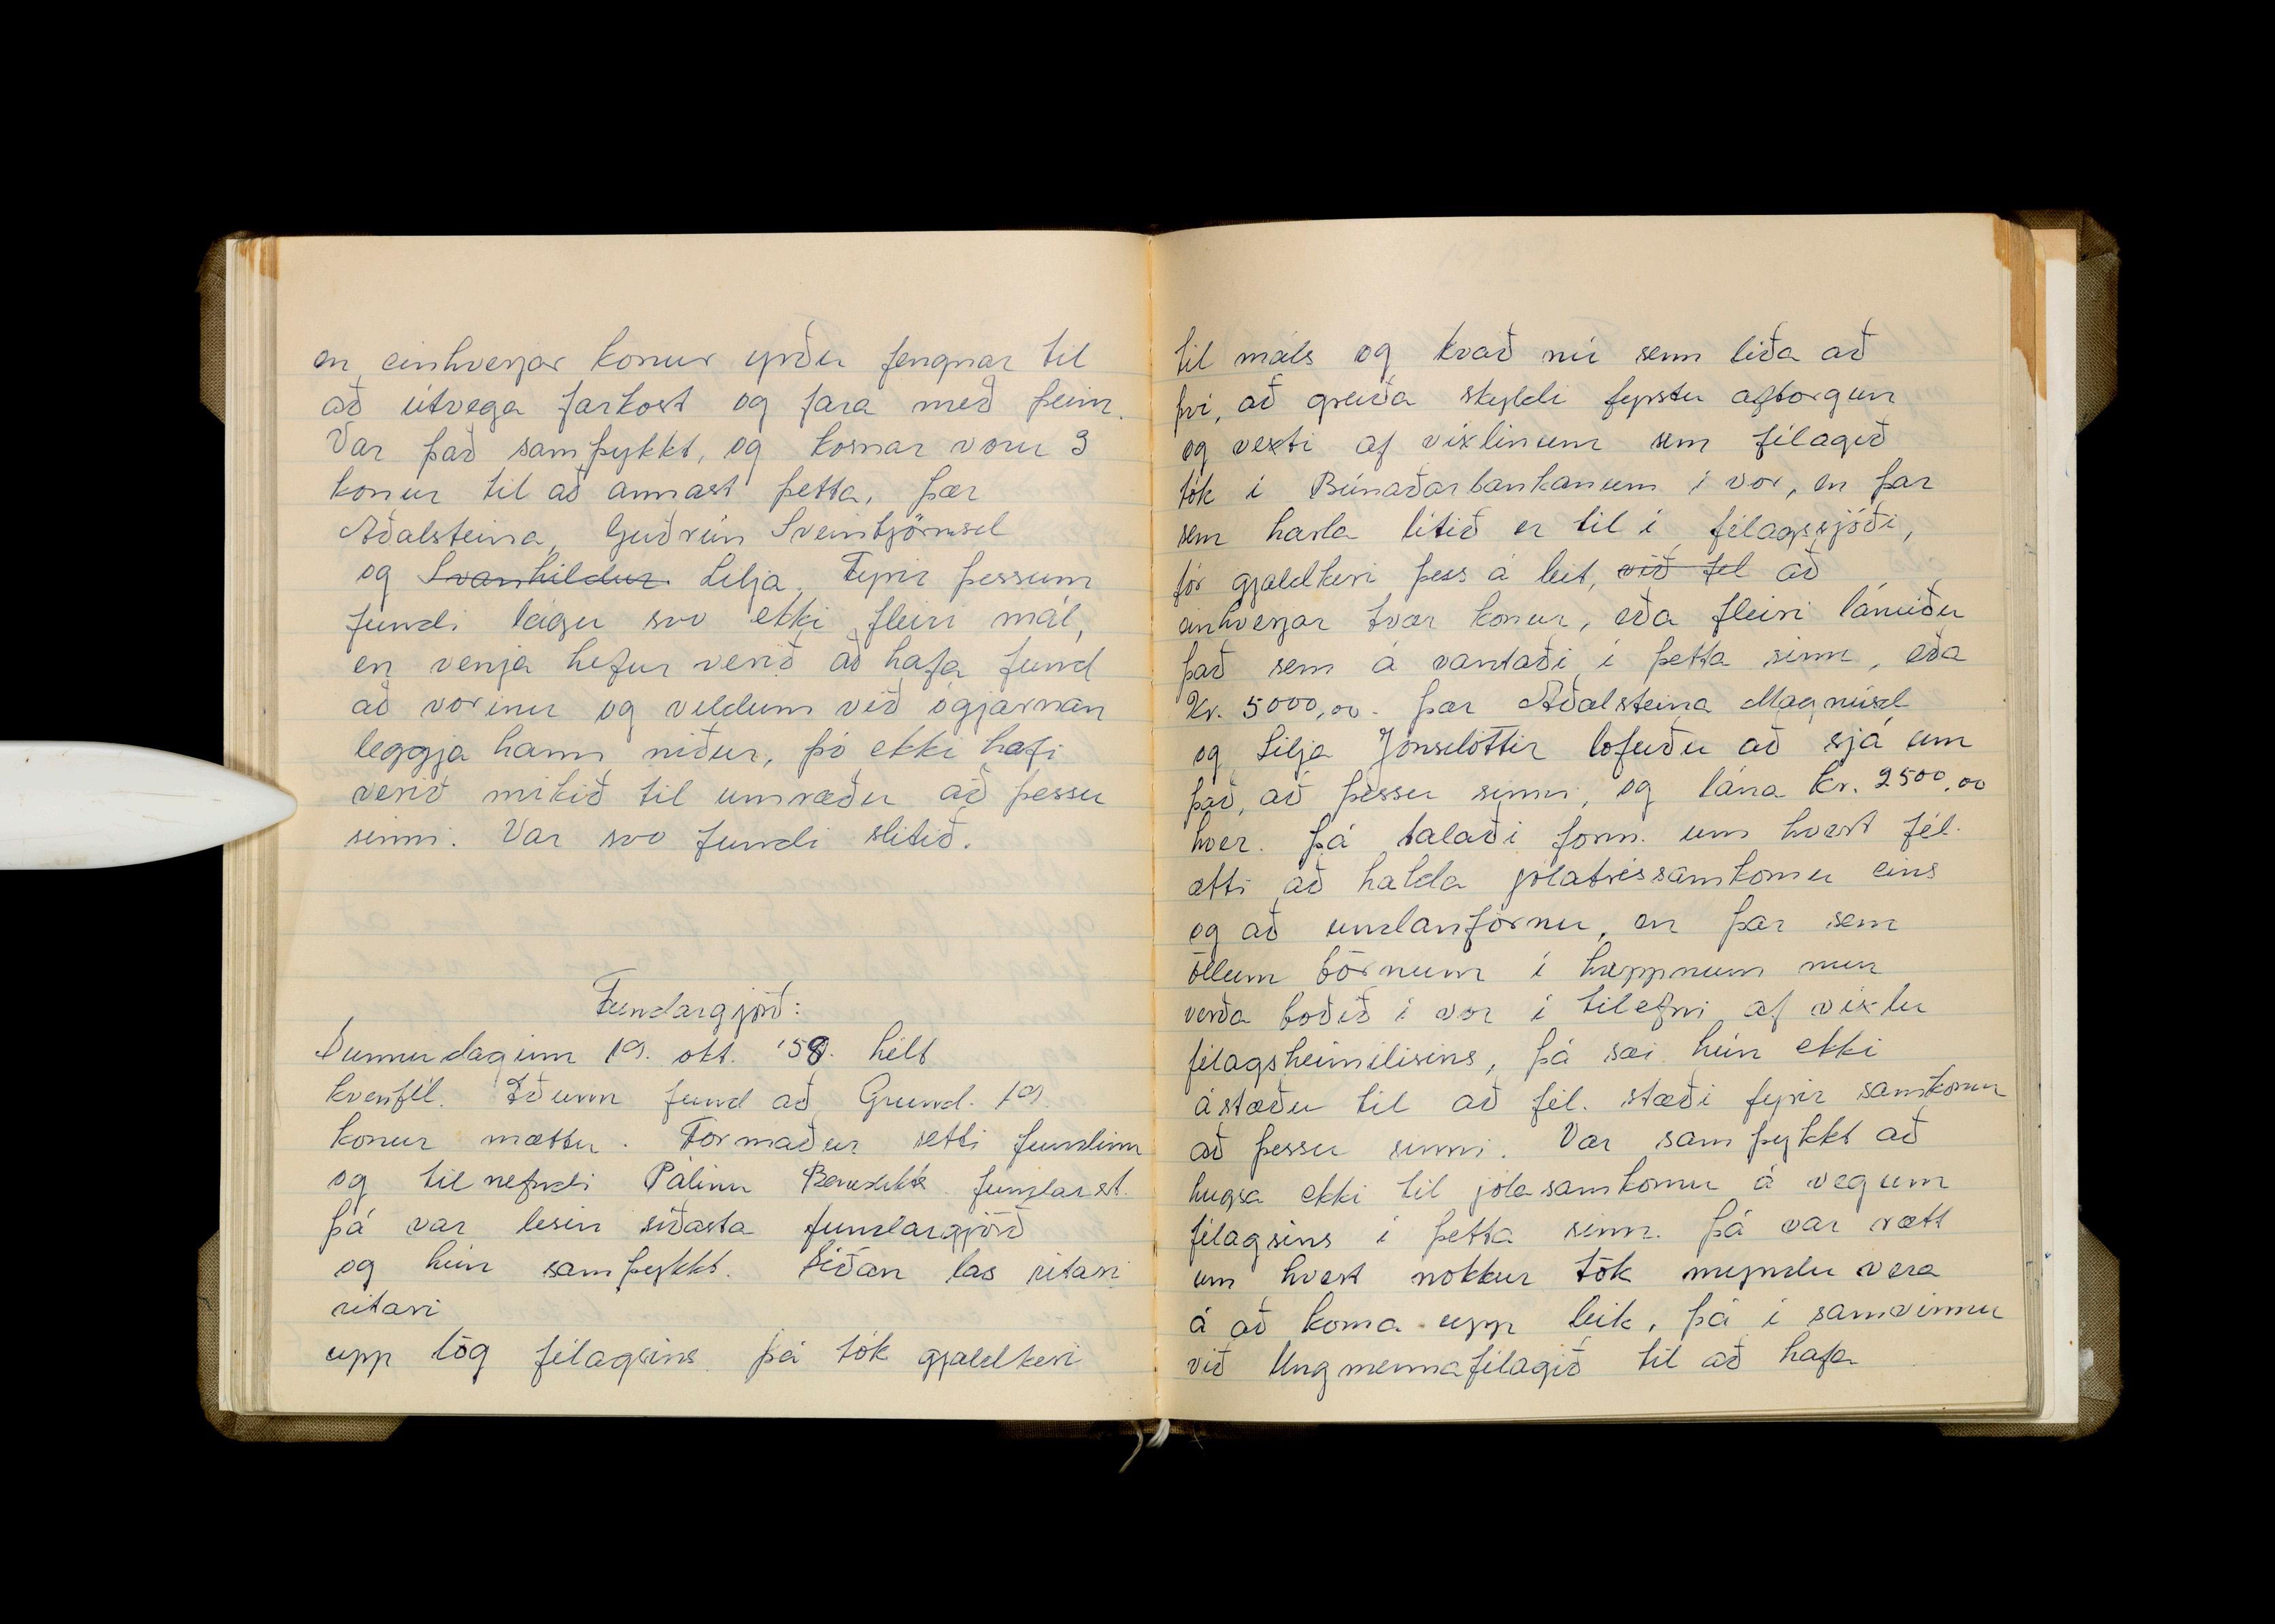 en einhverjar konur yrðu fengnar til
að útvega farkost og fara með þeim.
Var það samþykkt, og kosnar voru 3
konur til að annast þetta, þær
Aðalsteina, Guðrún Sveinbjörnsd
og Svanhildur Lilja. Fyrir þessum
fundi lágu svo ekki fleiri mál,
en venja hefur verið að hafa fund
að vorinu og vildum við ógjarnan
leggja hann niður, þó ekki hafi
verið mikið til umræðu að þessu
sinni. Var svo fundi slitið.
Fundargjörð:
Sunnudaginn 19. okt. '58. hélt
kvenfél. Iðunn fund að Grund. 19
konur mættu. Formaður setti fundinn
og tilnefndi Pálínu Benedikts fundarst.
Þá var lesin síðasta fundargjörð
og hún samþykkt. Síðan las ritari
ritari
upp lög félagsins. Þá tók gjaldkeri
til máls og kvað nú senn líða að
því, að greiða skyldi fyrstu afborgun
og vexti af víxlinum sem félagið
tók í Búnaðarbankanum í vor, en þar
sem harla lítið er til í félagssjóði,
fór gjaldkeri þess á leit, við fél að
einhverjar tvær konur, eða fleiri lánuðu
það sem á vantaði í þetta sinn, eða
Kr. 5000,00. Þær Aðalsteina Magnúsd
og Lilja Jónsdóttir lofuðu að sjá um
það, að þessu sinni, og lána kr. 2500,00
hver. Þá talaði form. um hvort fél.
ætti að halda jólatréssamkomu eins
og að undanförnu, en þar sem
öllum börnum í hreppnum mun
verða boðið í vor í tilefni af vígslu
félagsheimilisins, þá sæi hún ekki
ástæðu til að fél. stæði fyrir samkomu
að þessu sinni. Var samþykkt að
hugsa ekki til jólasamkomu á vegum
félagsins í þetta sinn. Þá var rætt
um hvort nokkur tök myndu vera
á að koma upp leik, þá í samvinnu
við Ungmennafélagið til að hafa